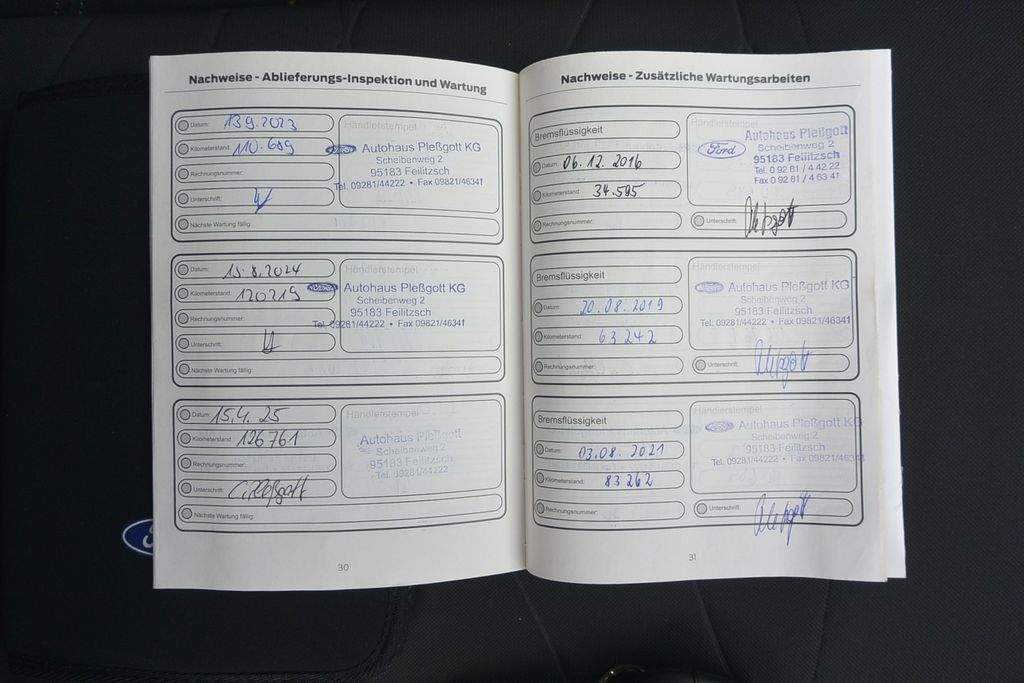 Nachweise - Ablieferungs-Inspektion und Wartung
Datum: 13.9.2023
Händlerstempel
Kilometerstand: 110.689
Autohaus Pleßgott KG
Scheibenweg 2
Rechnungsnummer:
95183 Feilitzsch
Tel. 09281/44222 • Fax 09821/46341
Unterschrift:
Nächste Wartung fällig:
Datum: 15.8.2024
Händlerstempel
Kilometerstand: 120219
Autohaus Pleßgott KG
Scheibenweg 2
Rechnungsnummer:
95183 Feilitzsch
Tel. 09281/44222 • Fax 09821/46341
Unterschrift:
Nächste Wartung fällig:
Datum: 15.4.25
Händlerstempel
Kilometerstand: 126761
Autohaus Pleßgott
Scheibenweg 2
Rechnungsnummer:
95183 Feilitzsch
Tel. 09281/44222
Unterschrift: C. Pleßgott
Nächste Wartung fällig:
30
Nachweise - Zusätzliche Wartungsarbeiten
Bremsflüssigkeit
Händlerstempel
Datum: 06.12.2016
Ford
Autohaus Pleßgott
Scheibenweg 2
95183 Feilitzsch
Tel. 0 92 81 / 4 42 22
Fax 0 92 81 / 4 63 41
Kilometerstand: 34.595
Rechnungsnummer:
Unterschrift:
Bremsflüssigkeit
Händlerstempel
Datum: 20.08.2019
Autohaus Pleßgott KG
Scheibenweg 2
95183 Feilitzsch
Tel. 09281/44222 • Fax 09821/46341
Kilometerstand: 63242
Rechnungsnummer:
Unterschrift:
Bremsflüssigkeit
Händlerstempel
Datum: 03.08.2021
Autohaus Pleßgott KG
Scheibenweg 2
95183 Feilitzsch
Tel. 09281/44222 • Fax 09821/46341
Kilometerstand: 83262
Rechnungsnummer:
Unterschrift:
31